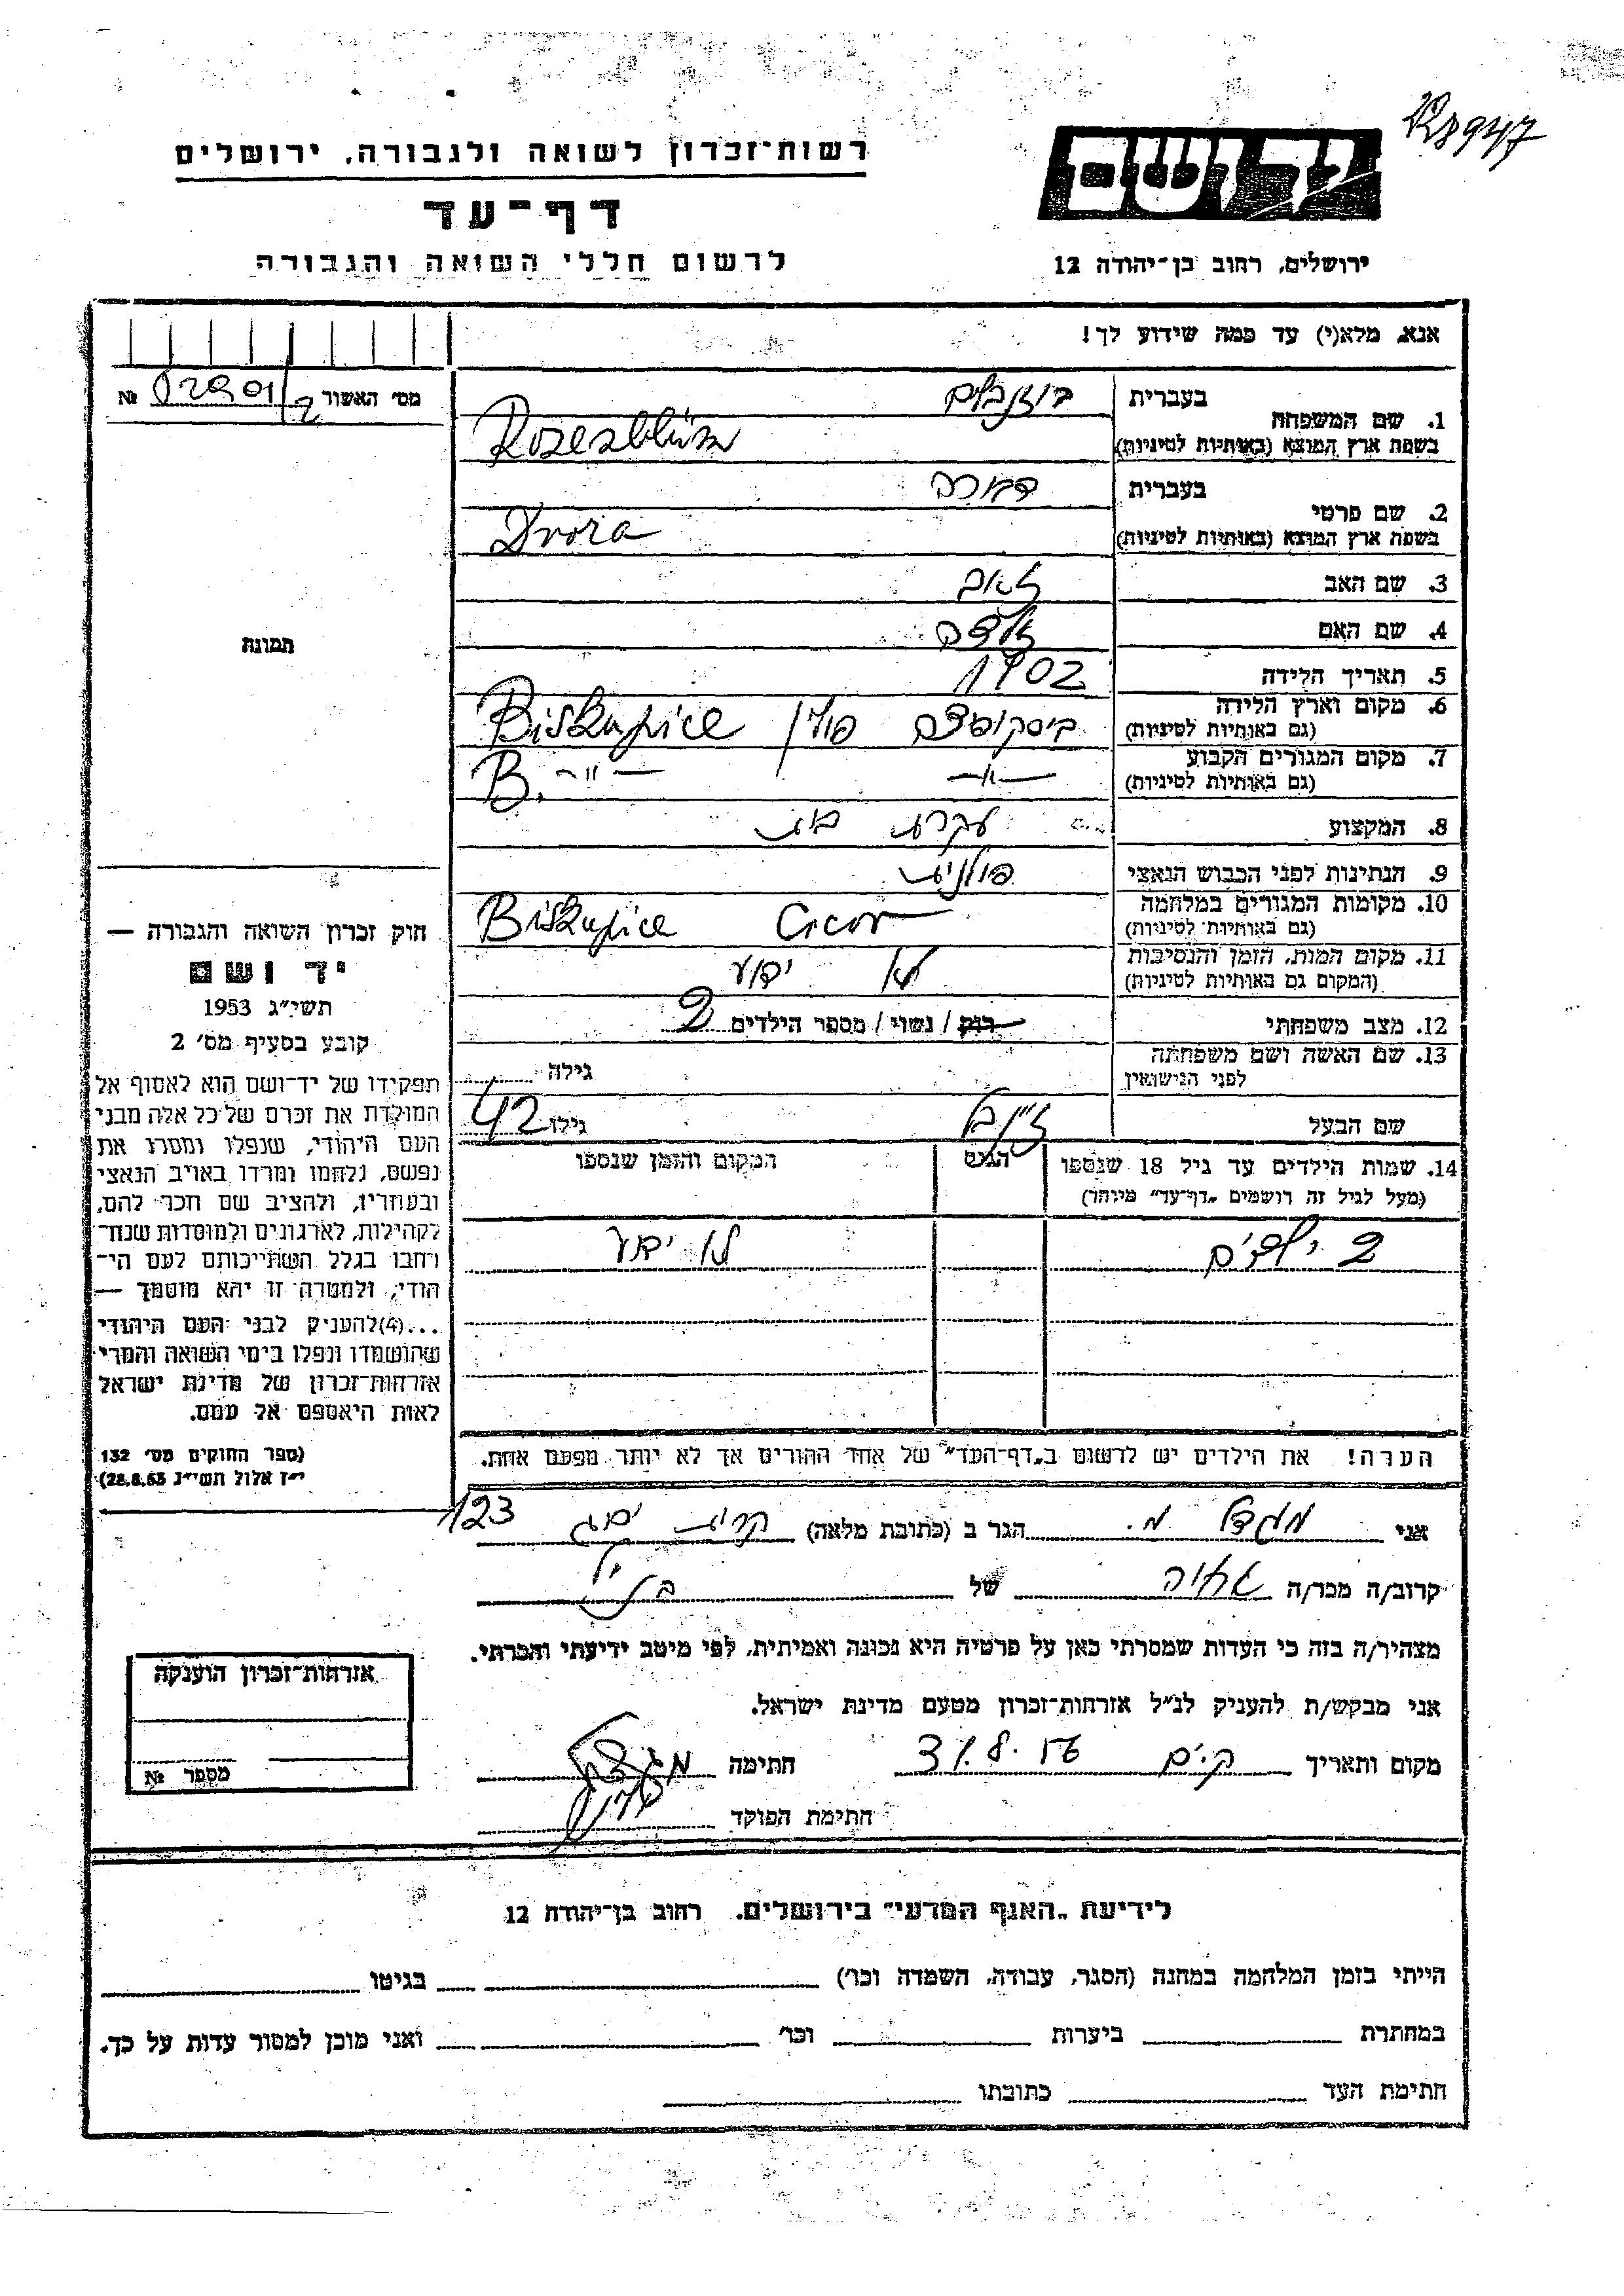 רשות־זכרון לשואה ולגבורה, ירושלים
דף־עד
לרשום חללי השואה והגבורה
יד ושם
ירושלים, רחוב בן־יהודה 12
אנא, מלא(י) עד כמה שידוע לך!
מס׳ האשור 02901/2 №
1. שם המשפחה
בעברית רוזנבלום
בשפת ארץ המוצא (באותיות לטיניות) Rozenblum
2. שם פרטי
בעברית דבורה
בשפת ארץ המוצא (באותיות לטיניות) Dvora
3. שם האב זאב
4. שם האם
5. תאריך הלידה 1902
6. מקום וארץ הלידה
(גם באותיות לטיניות) ביסקופיצה פולין Biskupice
7. מקום המגורים הקבוע
(גם באותיות לטיניות) —״— B. —״—
8. המקצוע עקרת בית
9. הנתינות לפני הכבוש הנאצי פולנית
10. מקומות המגורים במלחמה
(גם באותיות לטיניות) Biskupice
11. מקום המות, הזמן והנסיבות
(המקום גם באותיות לטיניות) לא ידוע
12. מצב משפחתי רוק / נשוי / מספר הילדים 2
13. שם האשה ושם משפחתה
לפני הנישואין
גילה
שם הבעל
גילו 42
14. שמות הילדים עד גיל 18 שנספו
(מעל לגיל זה רושמים „דף־עד״ מיוחד)
הגיל
המקום והזמן שנספו
2 ילדים לא ידוע
הערה! את הילדים יש לרשום ב„דף־העד״ של אחד ההורים אך לא יותר מפעם אחת.
תמונה
חוק זכרון השואה והגבורה —
יד ושם
תשי״ג 1953
קובע בסעיף מס׳ 2
תפקידו של יד־ושם הוא לאסוף אל
המולדת את זכרם של כל אלה מבני
העם היהודי, שנפלו ומסרו את
נפשם, נלחמו ומרדו באויב הנאצי
ובעוזריו, ולהציב שם וזכר להם,
לקהילות, לארגונים ולמוסדות שנח־
רבו בגלל השתייכותם לעם הי־
הודי, ולמטרה זו יהא מוסמך —
...(4)להעניק לבני העם היהודי
שהושמדו ונפלו בימי השואה והמרי
אזרחות־זכרון של מדינת ישראל
לאות היאספם אל עמם.
(ספר החוקים מס׳ 132
י״ז אלול תשי״ג 28.8.53)
אני מגדל מ. הגר ב (כתובת מלאה) קרית ים 123
קרוב/ה מכר/ה של
מצהיר/ה בזה כי העדות שמסרתי כאן על פרטיה היא נכונה ואמיתית, לפי מיטב ידיעתי והכרתי.
אני מבקש/ת להעניק לנ״ל אזרחות־זכרון מטעם מדינת ישראל.
מקום ותאריך ק.ים 31.8.56 חתימה
חתימת הפוקד
אזרחות־זכרון הוענקה
מספר №
לידיעת „האגף המדעי״ בירושלים. רחוב בן־יהודה 12
הייתי בזמן המלחמה במחנה (הסגר, עבודה, השמדה וכו׳) בגיטו
במחתרת ביערות וכו׳ ואני מוכן למסור עדות על כך.
חתימת העד כתובתו